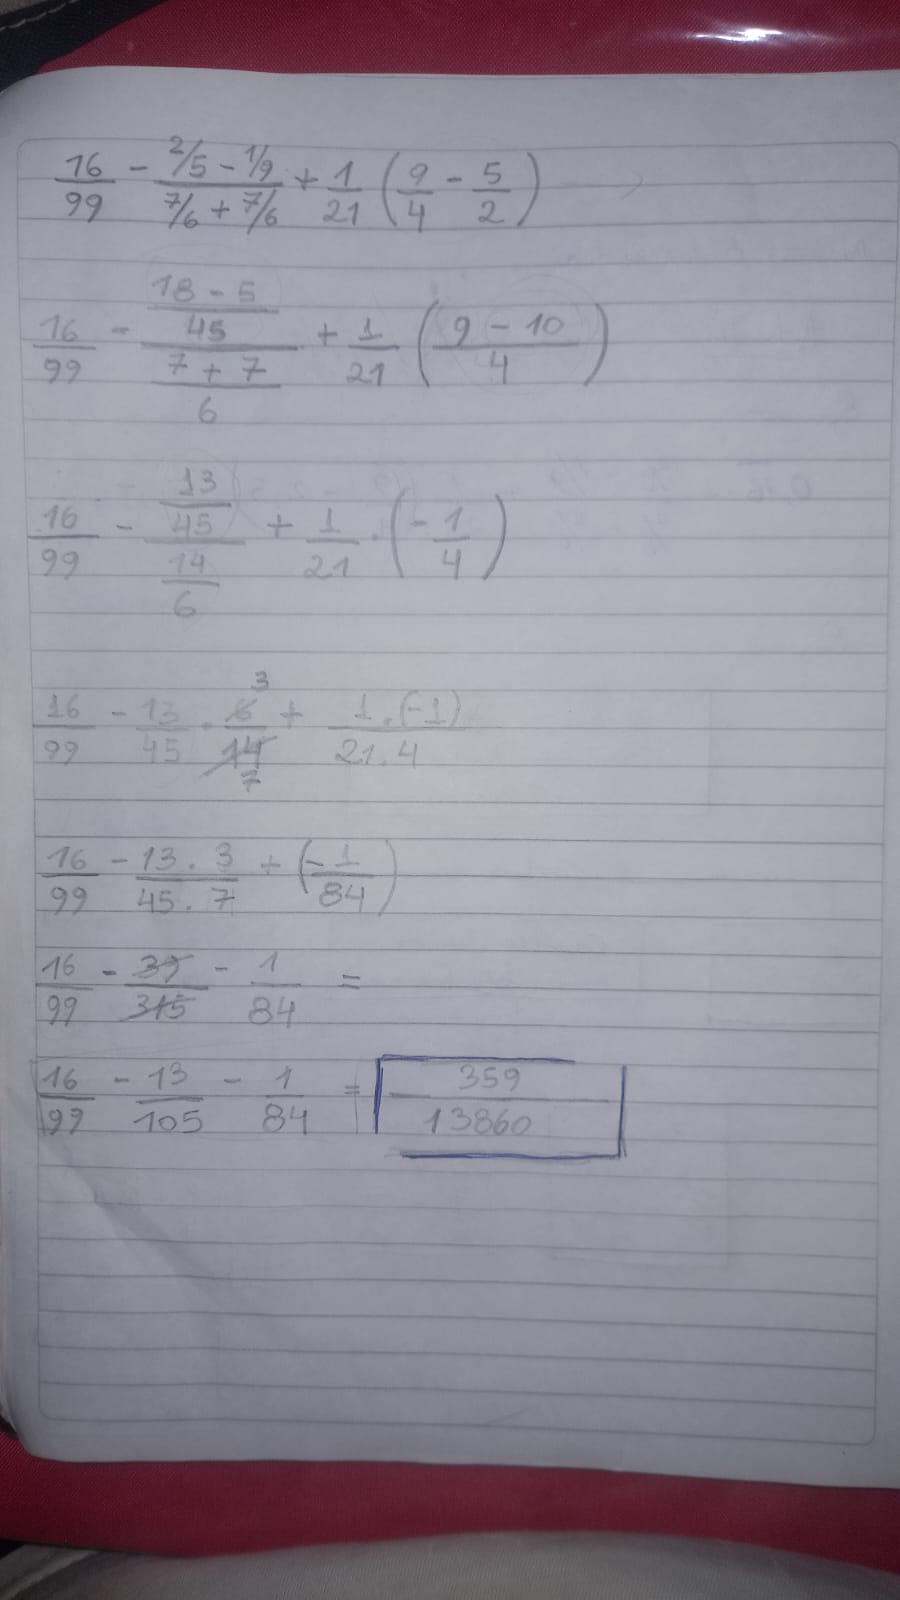 16/99 - (2/5 - 1/9)/(7/6 + 7/6) + 1/21 (9/4 - 5/2)
16/99 - ((18 - 5)/45)/((7 + 7)/6) + 1/21 ((9 - 10)/4)
16/99 - (13/45)/(14/6) + 1/21 . (-1/4)
16/99 - 13/45 . 6/14 + 1 . (-1)/21 . 4
3
7
16/99 - 13 . 3/45 . 7 + (-1/84)
16/99 - 39/315 - 1/84 =
16/99 - 13/105 - 1/84 = 359/13860